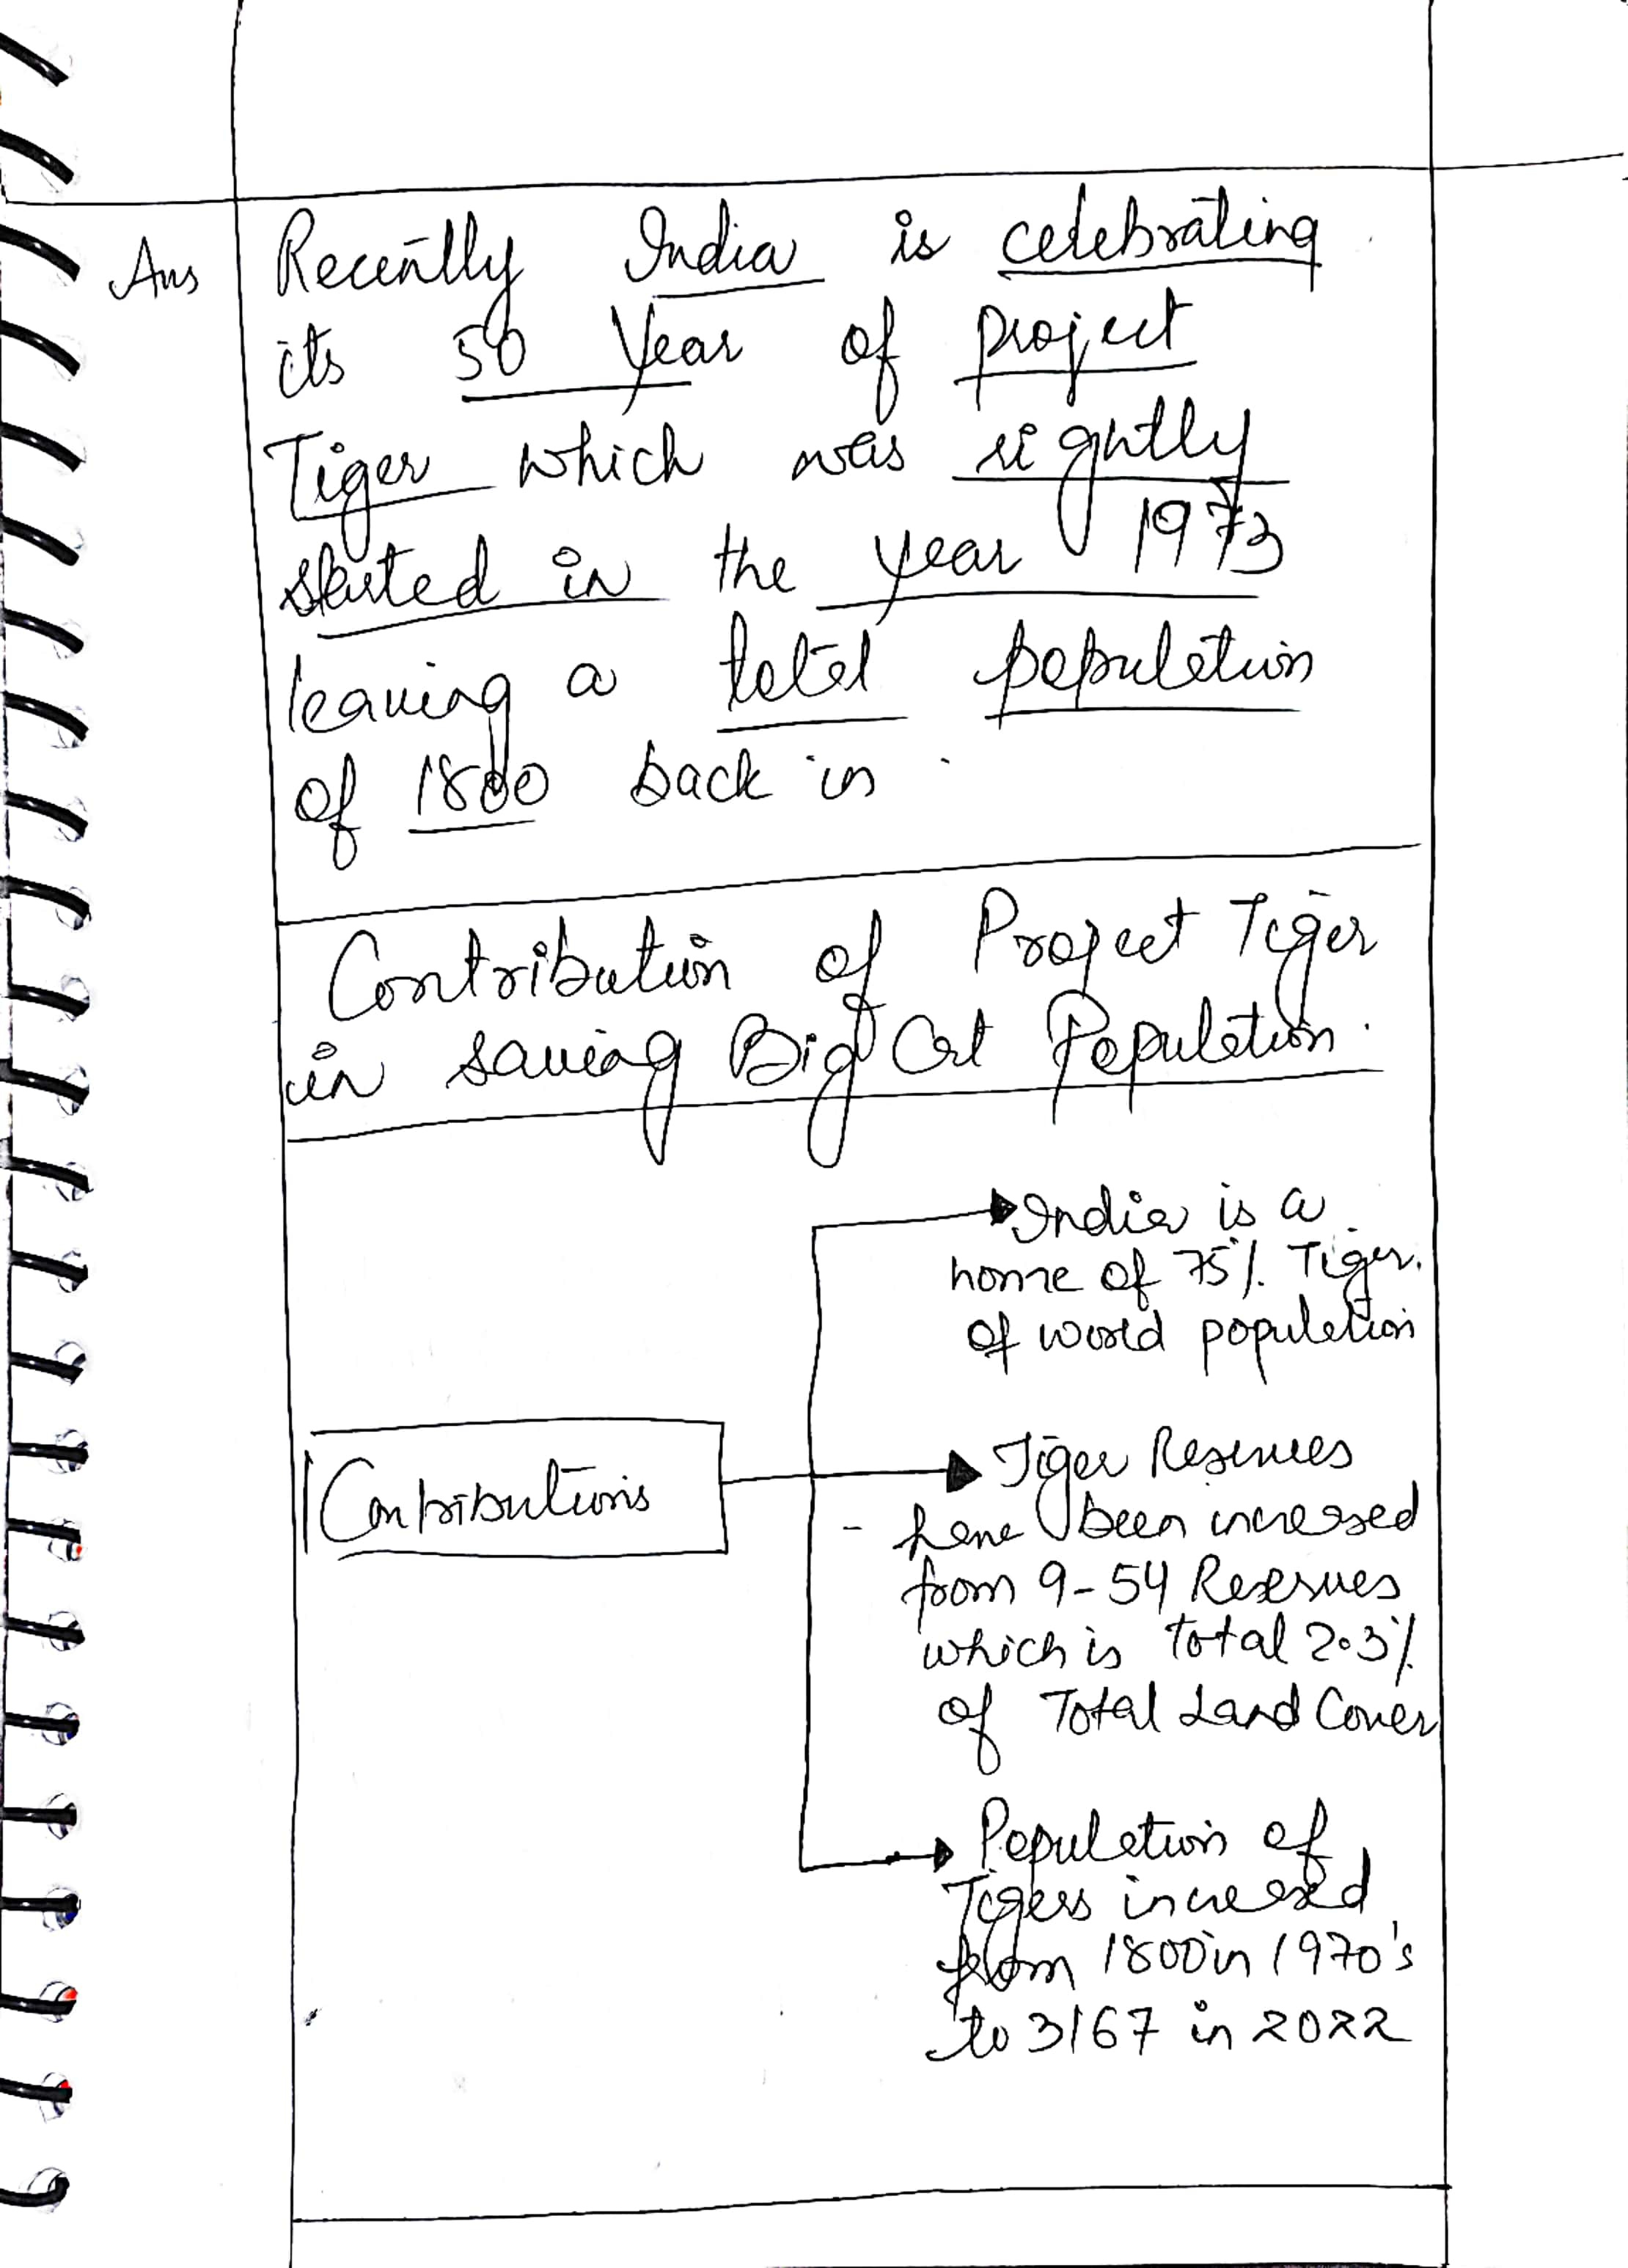 Ans
Recently India is celebrating
its 50 Year of project
Tiger which was rightly
started in the year 1973
leaving a total population
of 1800 back in
Contribution of Project Tiger
in saving Big Cat Population.
Contributions
India is a
home of 75% Tiger.
of world population
Tiger Reserves
- have been increased
from 9-54 Reserves
which is total 2.3%
of Total Land Cover
Population of
Tigers increased
from 1800 in 1970's
to 3167 in 2022